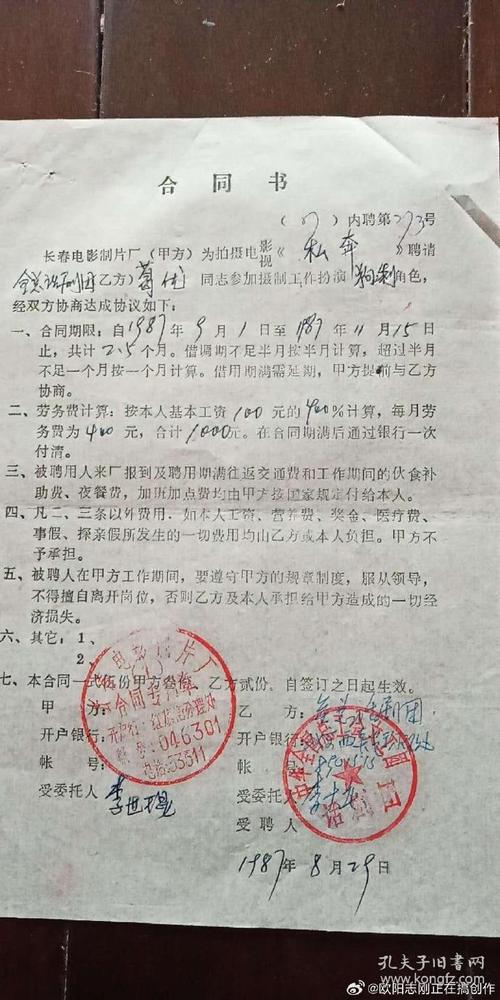 合同书
(87)内聘第273号
长春电影制片厂(甲方)为拍摄电影视《私奔》聘请
全总话剧团乙方)葛优同志参加摄制工作扮演角色,
经双方协商达成协议如下:
一、合同期限:自1987年9月1日至1987年11月15日
止,共计2.5个月。借调期不足半月按半月计算,超过半月
不足一个月按一个月计算。借用期满需延期,甲方提前与乙方
协商。
二、劳务费计算:按本人基本工资100元的400%计算,每月劳
务费为400元,合计1000元。在合同期满后通过银行一次
付清。
三、被聘用人来厂报到及聘用期满往返交通费和工作期间的伙食补
助费、夜餐费,加班加点费均由甲方按国家规定付给本人。
四、凡二、三条以外费用,如本人工资、营养费、奖金、医疗费、
事假、探亲假所发生的一切费用均由乙方或本人负担。甲方不
予承担。
五、被聘人在甲方工作期间,要遵守甲方的规章制度,服从领导,
不得擅自离开岗位,否则乙方及本人承担给甲方造成的一切经
济损失。
六、其它:1、
2、
七、本合同一式份甲方份,乙方贰份,自签订之日起生效。
甲方:
乙方:全总话剧团
开户银行:
开户银行:
帐号:
帐号:
受委托人
受委托人
受聘人
1987年8月29日
电影制片厂
合同专用章
开户行:红旗街办理处
帐号:046301
电话:53311
话剧团
孔夫子旧书网
@欧阳志刚正在搞创作